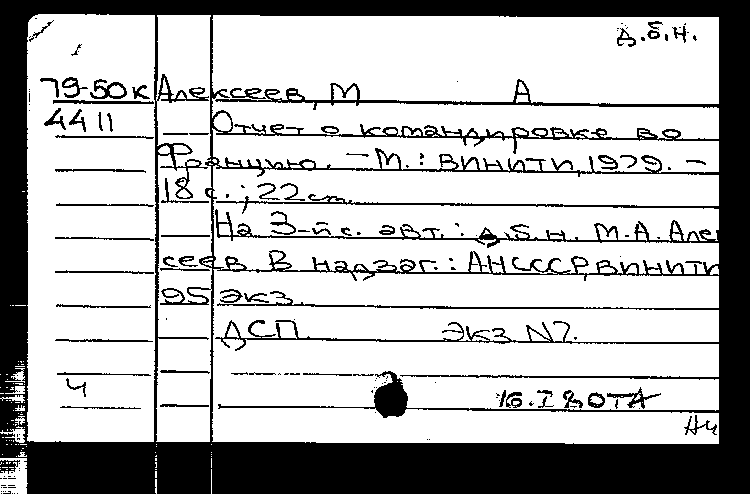 д.б.н.
79-50к Алексеев, М А
4411 Отчет о командировке во
Францию. – М.: ВИНИТИ, 1979. –
18 с.; 22 см.
На 3-й с. авт.: д.б.н. М.А. Алек
сеев. В надзаг.: АНСССР, ВИНИТИ
95 экз.
ДСП. экз N7.
Ч 16.I 80 ТА
Нч